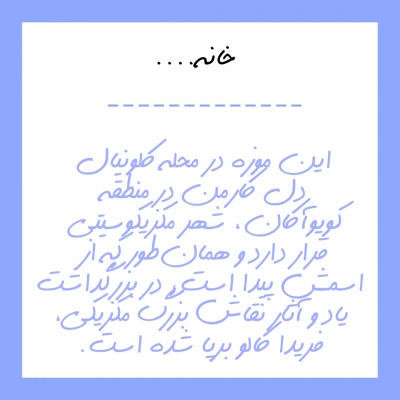 خانه....
این موزه در محله کلونیال
دل کارمن در منطقه
کویوآکان، شهر مکزیکوسیتی
قرار دارد و همان طور که از
اسمش پیدا است، در بزرگداشت
یاد و آثار نقاش بزرگ مکزیکی،
فریدا کالو برپا شده است.